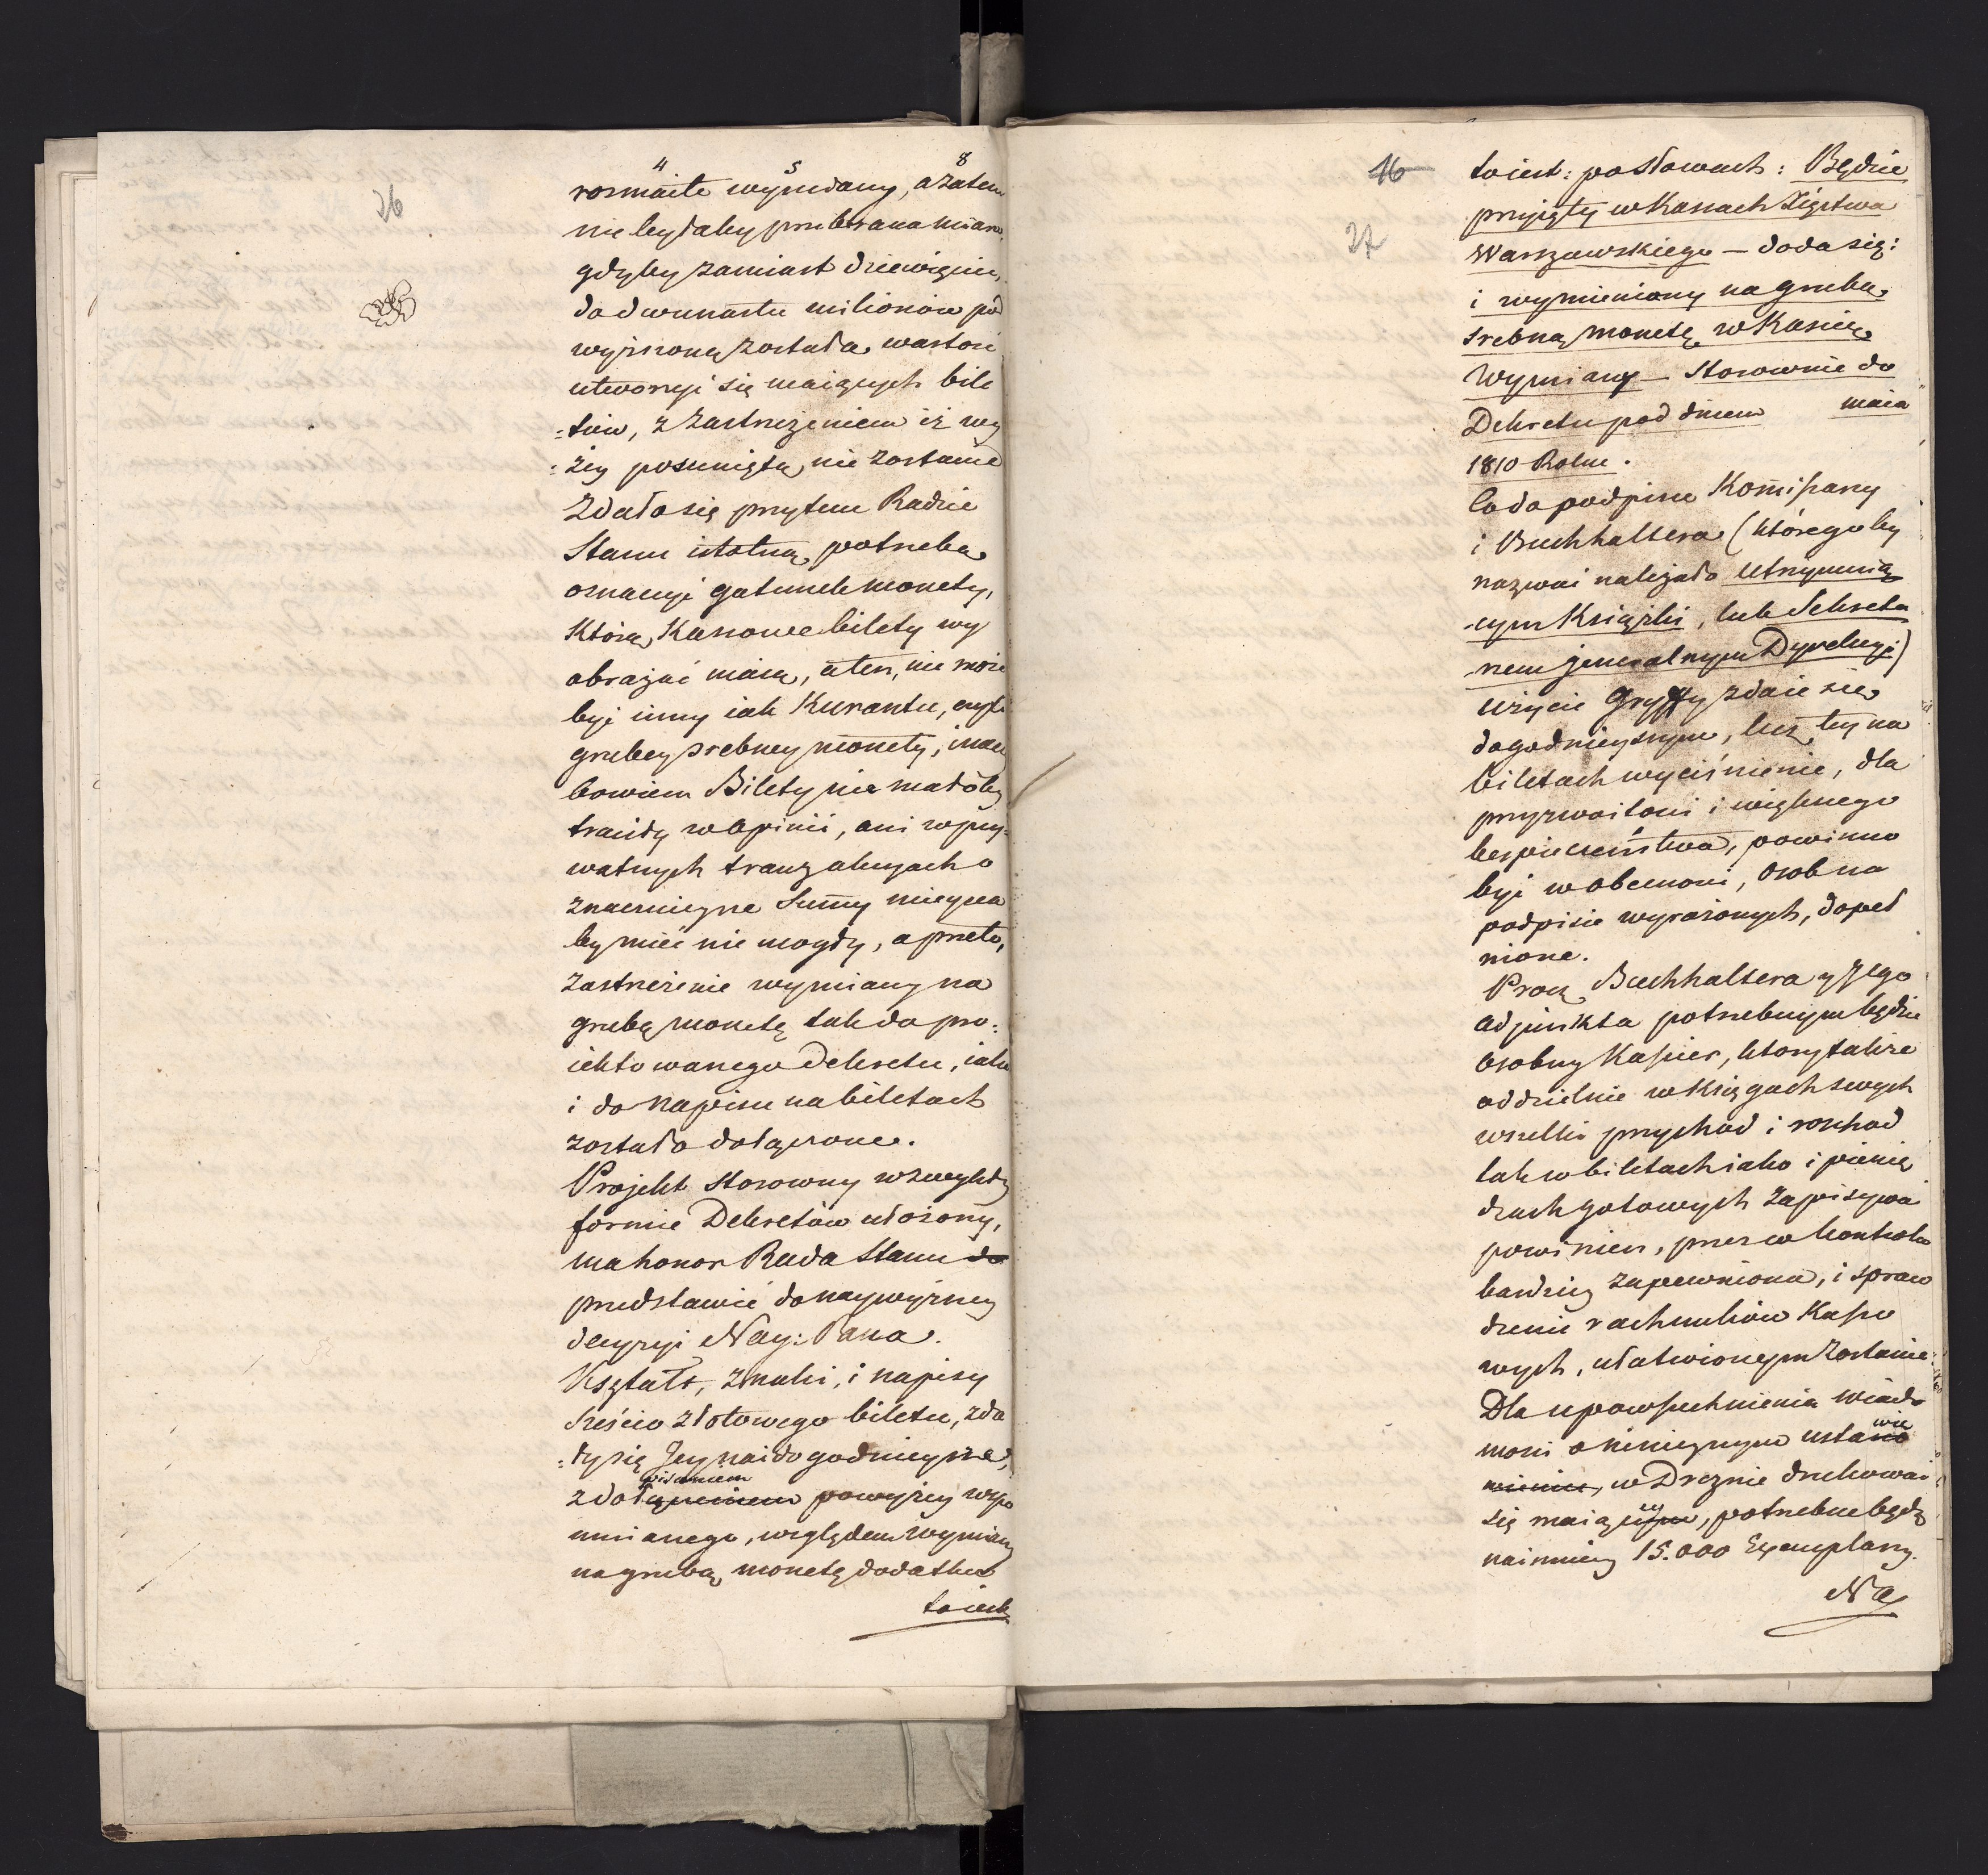 26
4 5 8
rozmaite wyrwany, azatem
nie byłaby przebrana miara,
gdyby zamiast dziewięciu,
do dwunastu milionów pod
wyższoną została wartość
utworzyć się maiących bile
=tów, z zastrzeżeniem iż wy
=żey posuniętą nie zostanie
Zdało się przytem Radzie
Stanu istotną potrzebą
oznaczyć gatunek monety,
którą Kassowe bilety wy
obrażać maią, a ten, nie może
być inny iak Kurantu, czyli
grubey srebrney monety, inaczey
bowiem Bilety nie małoby
traciły w opinii, ani w pry-
watnych tranzakcyach o
znacznieysze Summy mieysca
by mieć nie mogły, a przeto,
zastrzeżenie wymiany na
grubą monetę tak do pro=
iektowanego Dekretu, iako
i do napisu na biletach
zostało dołączone.
Projekt stosowny w zwykłey
formie Dekretów ułożony,
ma honor Rada Stanu do
przedstawić do naywyższey
decyzyi Nay: Pana.
Kształt, znaki, i napisy
sześcio złotowego biletu, zda
=ły się Jey naidogodnieysze,
pisaniem
z dołączeniem powyżey wspo
mnianego, względem wymiany
na grubą monetę dodatku
toiest
16
27
toiest: po słowach: Będzie
przyięty w Kassach Xięstwa
Warszawskiego – doda się:
i wymieniony na grubą
srebną monetę w Kassie
Wymiany – Stosownie do
Dekretu pod dniem maia
1810 Roku.
Co do podpisu Kommissarzy
i Buchhaltera (któregoby
nazwać należało utrzymuią
-cym Książki, lub Sekreta
rzem jeneralnym Dyrekcyi)
użycie Gryffy zdaie się
dogodnieyszym, lecz tey na
biletach wyciśnienie, dla
przyzwoitości i większego
bezpieczeństwa, powinno
być w obecności, osob na
podpisie wyrażonych, dopeł
nione.
Procz Buchhaltera y Jego
adjunkta potrzebnym będzie
osobny Kassier, ktory także
oddzielnie w Księgach swych
wszelki przychod i rozchod
tak w biletach iako i pienią
dzach gotowych zapisywać
powinien, przez co kontrola
bardziey zapewniona, i spraw
dzenie rachunków Kasso
wych, ułatwionym zostanie.
Dla upowszechnienia wiado
mości o ninieyszym ustano
wie
wieniu, w Dreznie drukować
się maiącym, potrzebne będą
cy
naimniey 15.000 Exemplarzy.
Na